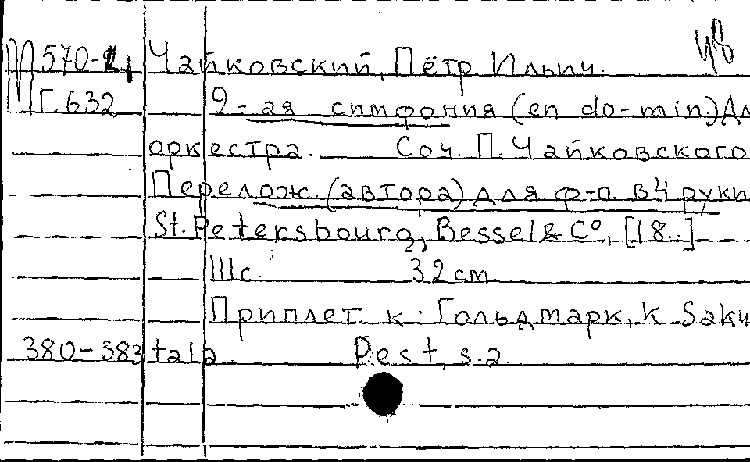 570-21 Чайковский, Пётр Ильич.
Г.632 2-ая симфония (en do-min.) Дл
оркестра. Соч. П. Чайковского
Перелож. (автора) для ф-п. в 4 руки
St. Petersbourg, Bessel & C°, [18..]
111с. 32 cm
Приплет. к: Гольдмарк, К. Saku
380-383 tala. Pest, s.a.